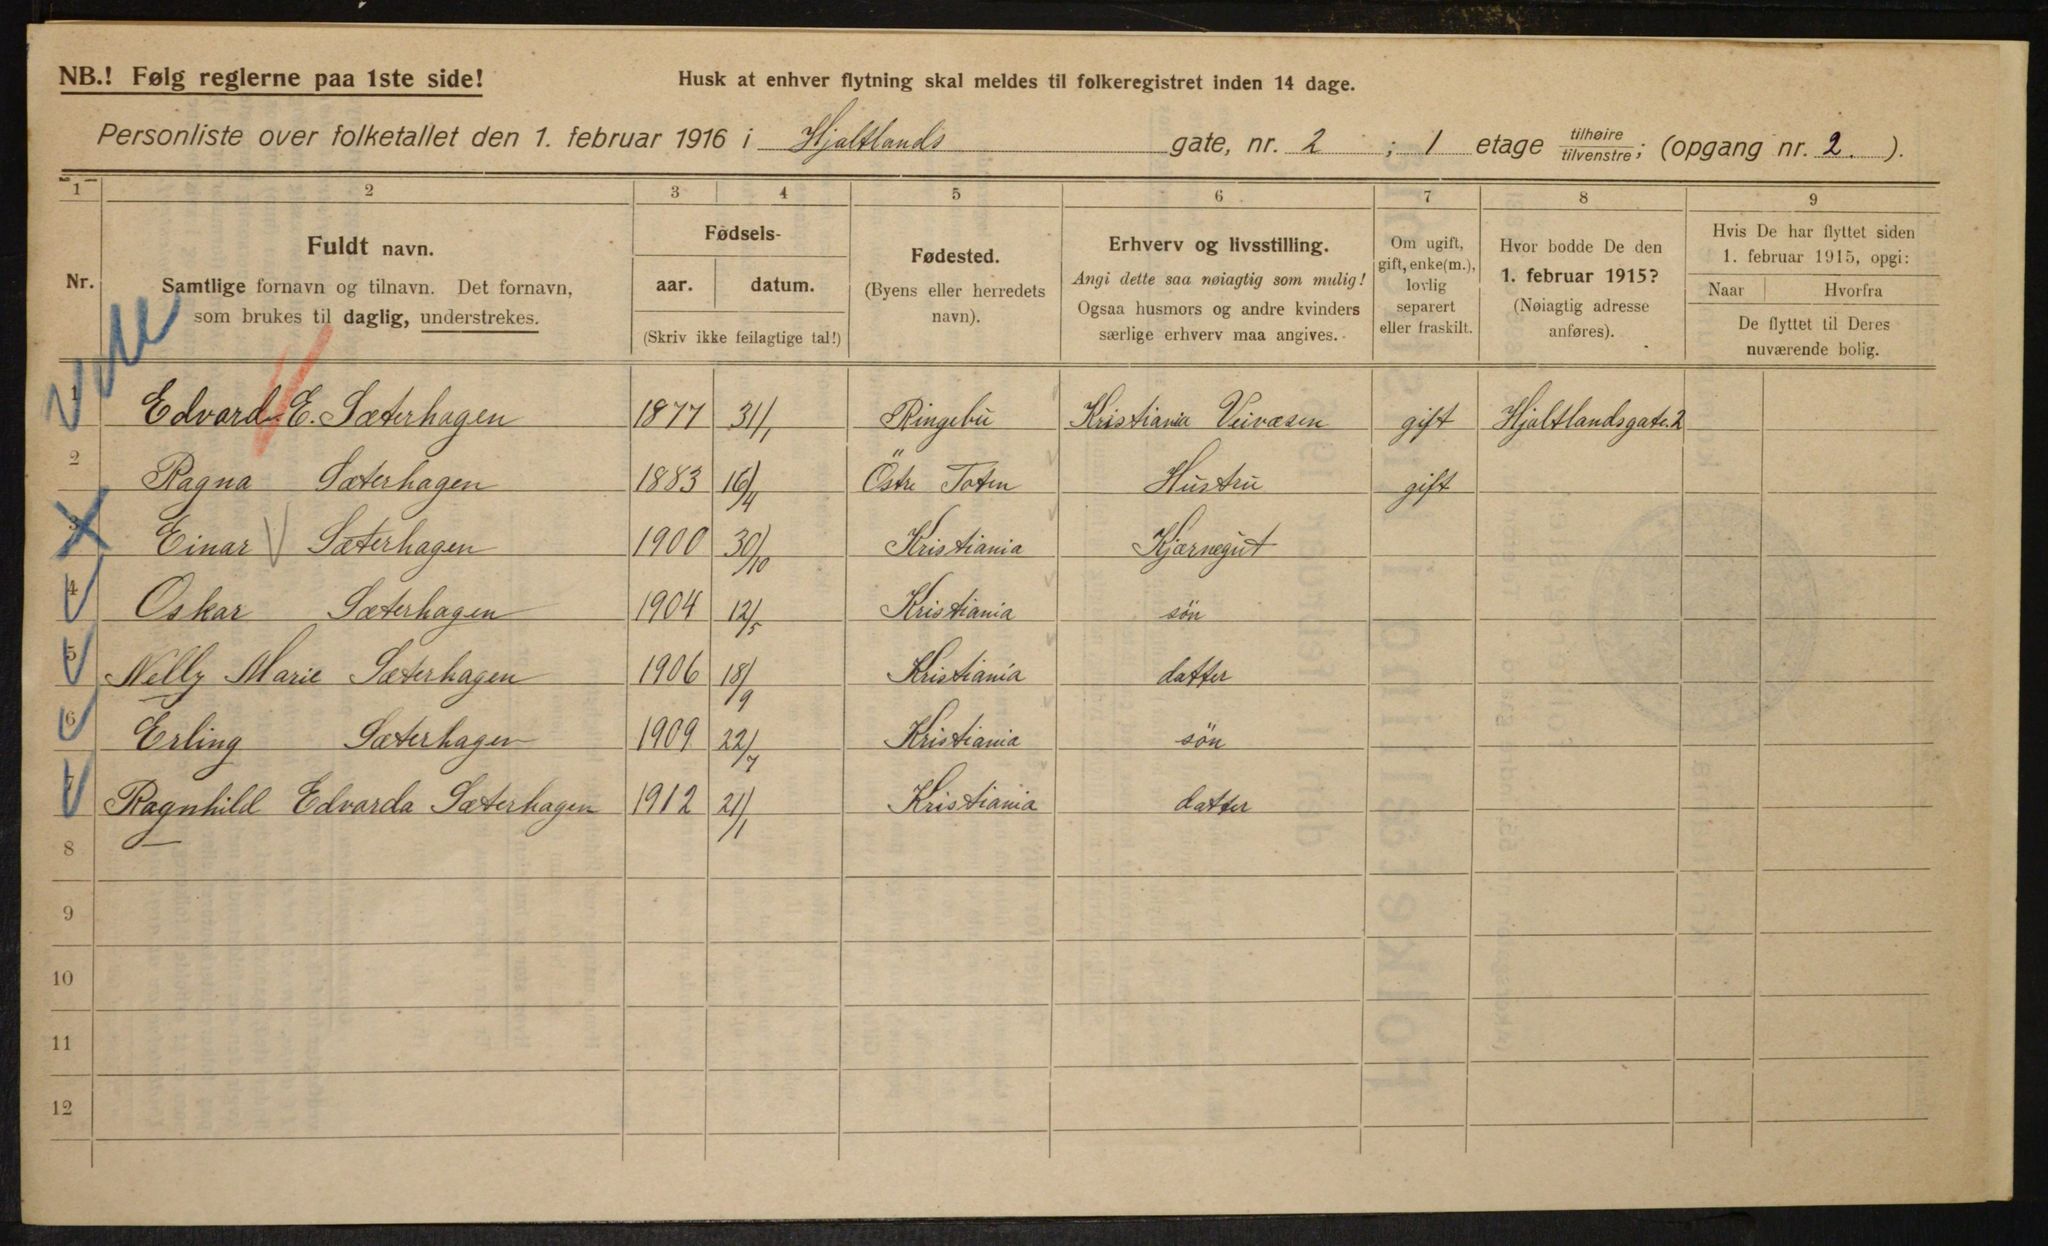 NB.! Følg reglerne paa 1ste side!
Husk at enhver flytning skal meldes til folkeregistret inden 14 dage.
Personliste over folketallet den 1. februar 1916 i Hjaltlands gate, nr. 2 ; 1 etage tilhøire/tilvenstre; (opgang nr. 2. ).
1 2 3 4 5 6 7 8 9
Nr.
Fuldt navn.
Samtlige fornavn og tilnavn. Det fornavn,
som brukes til daglig, understrekes.
Fødsels-
aar. datum.
(Skriv ikke feilagtige tal!)
Fødested.
(Byens eller herredets
navn).
Erhverv og livsstilling.
Angi dette saa nøiagtig som mulig!
Ogsaa husmors og andre kvinders
særlige erhverv maa angives.
Om ugift,
gift, enke(m.),
lovlig
separert
eller fraskilt.
Hvor bodde De den
1. februar 1915?
(Nøiagtig adresse
anføres).
Hvis De har flyttet siden
1. februar 1915, opgi:
Naar Hvorfra
De flyttet til Deres
nuværende bolig.
1 Edvard E. Sæterhagen 1877 31/1 Ringebu Kristiania Veivæsen gift Hjaltlandsgate.2
2 Ragna Sæterhagen 1883 16/4 Östre Toten Hustru gift
3 Einar Sæterhagen 1900 30/10 Kristiania Kjørnegut
4 Oskar Sæterhagen 1904 12/5 Kristiania sön
5 Nelly Marie Sæterhagen 1906 18/9 Kristiania datter
6 Erling Sæterhagen 1909 22/7 Kristiania sön
7 Ragnhild Edvarda Sæterhagen 1912 21/1 Kristiania datter
8
9
10
11
12